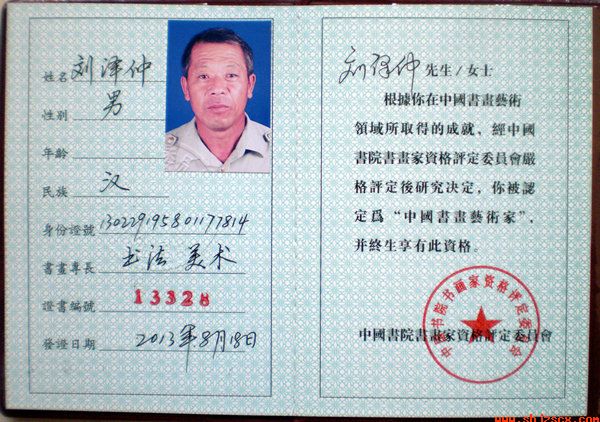 姓名 刘泽仲
性別 男
年齡
民族 汉
身份證號 130229195801177814
書畫專長 书法 美术
證書編號 13328
發證日期 2013年8月18日
刘泽仲 先生/女士
根據你在中國書畫藝術
領域所取得的成就，經中國
書院書畫家資格評定委員會嚴
格評定後研究决定，你被認
定爲“中國書畫藝術家”，
并終生享有此資格。
中國書院書畫家資格評定委員會
中国书院书画家资格评定委员会
www.shjzscx.com